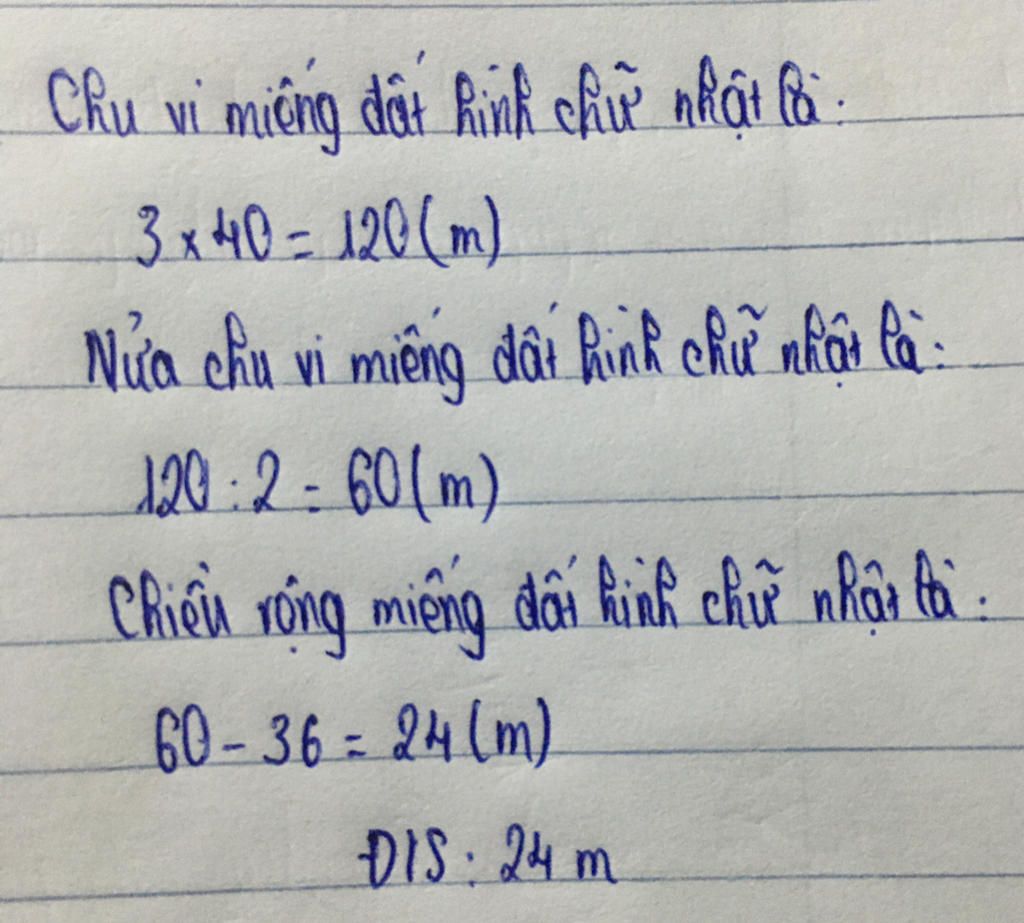 Chu vi miếng đất hình chữ nhật là:
3 x 40 = 120 (m)
Nửa chu vi miếng đất hình chữ nhật là:
120 : 2 = 60 (m)
Chiều rộng miếng đất hình chữ nhật là:
60 - 36 = 24 (m)
Đ/S: 24 m